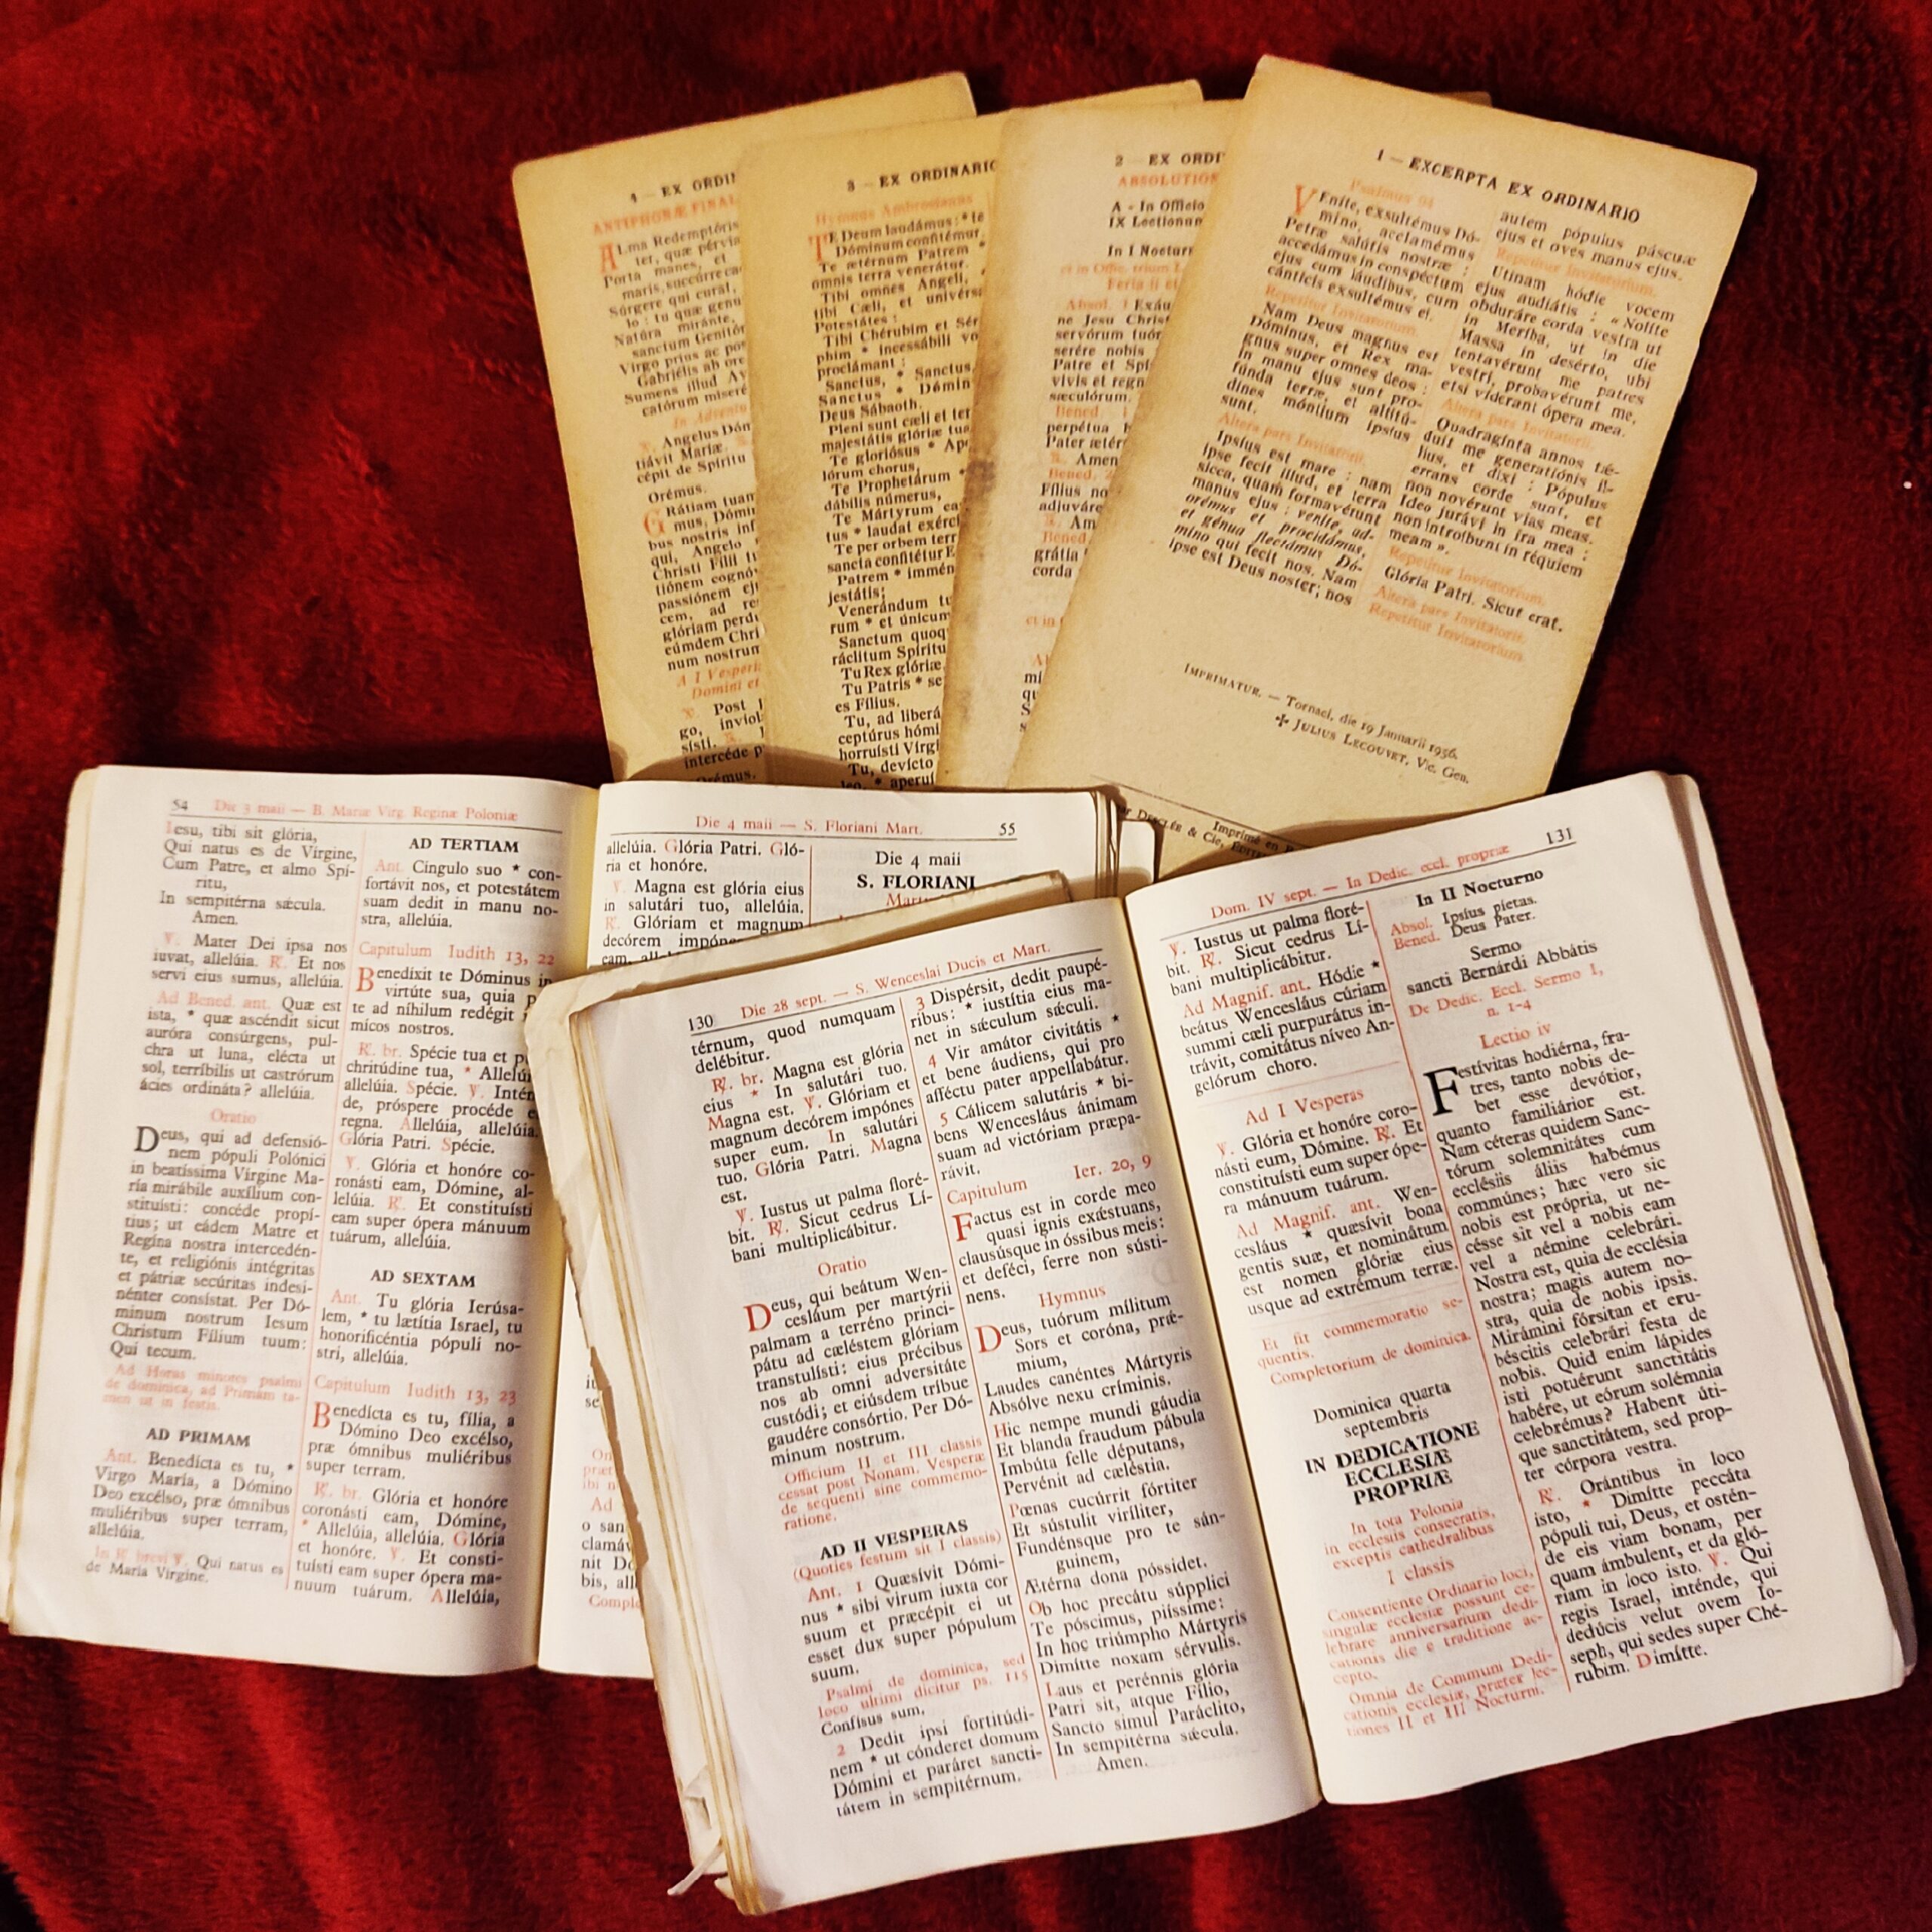 4 — EX ORDI
ANTIPHONÆ FINAL
ALma Redemptóris
ter, quæ pérvia
Porta manes, et
maris, succúrre ca
Súrgere qui curat,
lo : tu quæ genu
Natúra miránte,
sanctum Genitór
Virgo prius ac pos
Gabriélis ab ore
Sumens illud Av
catórum miseré
In Adventu
℣. Angelus Dóm
tiávit Mariæ.
cépit de Spíritu
Orémus.
GRátiam tuam
mus, Dómi
bus nostris inf
qui, Angelo
Christi Fílii tu
tiónem cognó
passiónem ej
cem, ad re
glóriam perdu
eúmdem Chri
num nostrum
A I Vesperi
Domini et
℣. Post
go, inviol
sísti.
intercéde p
Orémus.
3 — EX ORDINARIO
Hymnus Ambrosianus
TE Deum laudámus : * te
Dóminum confitémur.
Te ætérnum Patrem *
omnis terra venerátur.
Tibi omnes Angeli,
tibi Cæli, et univérs
Potestátes :
Tibi Chérubim et Sér
phim * incessábili vo
proclámant :
Sanctus, * Sanctus,
Sanctus * Dómin
Deus Sábaoth.
Pleni sunt cæli et ter
majestátis glóriæ tuæ
Te gloriósus * Apo
lórum chorus,
Te Prophetárum *
dábilis númerus,
Te Mártyrum ca
tus * laudat exérci
Te per orbem terr
sancta confitétur E
Patrem * immén
jestátis;
Venerándum tu
rum * et únicum
Sanctum quoq
ráclitum Spíritu
Tu Rex glóriæ
Tu Patris * se
es Fílius.
Tu, ad liberá
ceptúrus hómi
horruísti Vírgi
Tu, devícto
leo, * aperuí
2 EX ORDI
ABSOLUTION
A - In Officio
IX Lectionum
In I Nocturn
et in Offic. trium L
Feria ii et
Absol. 1 Exáu
ne Jesu Christ
servórum tuór
serére nobis
Patre et Spí
vivis et regn
sæculórum.
Bened. 1
perpétua b
Pater ætér
℟. Amen
Bened. 2
Fílius no
adjuváre
℟. Am
Bened.
grátia
corda
et in
1 — EXCERPTA EX ORDINARIO
Psalmus 94
VEníte, exsultémus Dó-
mino, acclamémus
Petræ salútis nostræ :
accedámus in conspéctum
ejus cum láudibus, cum
cánticis exsultémus ei.
Repetitur Invitatorium.
Nam Deus magnus est
Dóminus, et Rex ma-
gnus super omnes deos :
in manu ejus sunt pro-
fúnda terræ, et altitú-
dines móntium ipsíus
sunt.
Altera pars Invitatorii.
Ipsíus est mare : nam
ipse fecit illud, et terra
sicca, quam formavérunt
manus ejus : veníte, ad-
orémus et procidámus,
et génua flectámus Dó-
mino qui fecit nos. Nam
ipse est Deus noster; nos
autem pópulus páscuæ
ejus et oves manus ejus.
Repetitur Invitatorium.
Utinam hódie vocem
ejus audiátis : « Nolíte
obduráre corda vestra ut
in Meríba, ut in die
Massa in desérto, ubi
tentavérunt me patres
vestri, probavérunt me,
etsi víderant ópera mea.
Altera pars Invitatorii.
Quadragínta annos tǽ-
duit me generatiónis il-
líus, et dixi : Pópulus
errans corde sunt, et
non novérunt vias meas.
Ideo jurávi in ira mea :
non introíbunt in réquiem
meam ».
Repetitur Invitatorium.
Glória Patri. Sicut erat.
Altera pars Invitatorii.
Repetitur Invitatorium
IMPRIMATUR. — Tornaci, die 19 Januarii 1956.
✠ JULIUS LECOUVET, Vic. Gen.
Imprimé en
DESCLÉE & Cie, ÉDITE
54 Die 3 maii — B. Mariæ Virg. Reginæ Poloniæ
Iesu, tibi sit glória,
Qui natus es de Vírgine,
Cum Patre, et almo Spí-
ritu,
In sempitérna sǽcula.
Amen.
℣. Mater Dei ipsa nos
iuvat, allelúia. ℟. Et nos
servi eius sumus, allelúia.
Ad Bened. ant. Quæ est
ista, * quæ ascéndit sicut
auróra consúrgens, pul-
chra ut luna, elécta ut
sol, terríbilis ut castrórum
ácies ordináta? allelúia.
Oratio
Deus, qui ad defensió-
nem pópuli Polónici
in beatíssima Vírgine Ma-
ría mirábile auxílium con-
stituísti: concéde propí-
tius; ut eádem Matre et
Regína nostra intercedén-
te, et religiónis intégritas
et pátriæ secúritas indesi-
nénter consístat. Per Dó-
minum nostrum Iesum
Christum Fílium tuum:
Qui tecum.
Ad Horas minores psalmi
de dominica, ad Primam ta-
men ut in festis.
AD PRIMAM
Ant. Benedícta es tu, *
Virgo María, a Dómino
Deo excélso, præ ómnibus
muliéribus super terram,
allelúia.
In ℟. brevi ℣. Qui natus es
de María Vírgine.
AD TERTIAM
Ant. Cíngulo suo * con-
fortávit nos, et potestátem
suam dedit in manu no-
stra, allelúia.
Capitulum Iudith 13, 22
Benedíxit te Dóminus in
virtúte sua, quia p
te ad níhilum redégit
mícos nostros.
℟. br. Spécie tua et pu
chritúdine tua, * Allelú
allelúia. Spécie. ℣. Intén
de, próspere procéde e
regna. Allelúia, allelúia.
Glória Patri. Spécie.
℣. Glória et honóre co-
ronásti eam, Dómine, al-
lelúia. ℟. Et constituísti
eam super ópera mánuum
tuárum, allelúia.
AD SEXTAM
Ant. Tu glória Ierúsa-
lem, * tu lætítia Israel, tu
honorificéntia pópuli no-
stri, allelúia.
Capitulum Iudith 13, 23
Benedícta es tu, fília, a
Dómino Deo excélso,
præ ómnibus muliéribus
super terram.
℟. br. Glória et honóre
coronásti eam, Dómine,
* Allelúia, allelúia. Glória
et honóre. ℣. Et consti-
tuísti eam super ópera ma-
nuum tuárum. Allelúia,
Die 4 maii — S. Floriani Mart. 55
allelúia. Glória Patri. Gló-
ria et honóre.
℣. Magna est glória eius
in salutári tuo, allelúia.
℟. Glóriam et magnum
decórem impóne
eam, alle
Die 4 maii
S. FLORIANI
Mart
o san
clamáv
nit Do
bis, all
Comple
130 Die 28 sept. — S. Wenceslai Ducis et Mart.
térnum, quod numquam
delébitur.
℟. br. Magna est glória
eius * In salutári tuo.
Magna est. ℣. Glóriam et
magnum decórem impónes
super eum. In salutári
tuo. Glória Patri. Magna
est.
℣. Iustus ut palma floré-
bit. ℟. Sicut cedrus Lí-
bani multiplicábitur.
Oratio
Deus, qui beátum Wen-
cesláum per martýrii
palmam a terréno princi-
pátu ad cæléstem glóriam
transtulísti: eius précibus
nos ab omni adversitáte
custódi; et eiúsdem tríbue
gaudére consórtio. Per Dó-
minum nostrum.
Officium II et III classis
cessat post Nonam. Vesperæ
de sequenti sine commemo-
ratione.
AD II VESPERAS
(Quoties festum sit I classis)
Ant. 1 Quæsívit Dómi-
nus * sibi virum iuxta cor
suum et præcépit ei ut
esset dux super pópulum
suum.
Psalmi de dominica, sed
loco ultimi dicitur ps. 115
Confísus sum.
2 Dedit ipsi fortitúdi-
nem * ut cónderet domum
Dómini et paráret sancti-
tátem in sempitérnum.
3 Dispérsit, dedit paupé-
ribus: * iustítia eius ma-
net in sǽculum sǽculi.
4 Vir amátor civitátis *
et bene áudiens, qui pro
afféctu pater appellabátur.
5 Cálicem salutáris * bi-
bens Wencesláus ánimam
suam ad victóriam præpa-
rávit.
Capitulum Ier. 20, 9
Factus est in corde meo
quasi ignis exǽstuans,
claususque in óssibus meis:
et deféci, ferre non sústi-
nens.
Hymnus
Deus, tuórum mílitum
Sors et coróna, prǽ-
mium,
Laudes canéntes Mártyris
Absólve nexu críminis.
Hic nempe mundi gáudia
Et blanda fraudum pábula
Imbúta felle députans,
Pervénit ad cæléstia.
Pœnas cucúrrit fórtiter
Et sústulit viríliter,
Fundénsque pro te sán-
guinem,
Ætérna dona póssidet.
Ob hoc precátu súpplici
Te póscimus, piíssime:
In hoc triúmpho Mártyris
Dimítte noxam sérvulis.
Laus et perénnis glória
Patri sit, atque Fílio,
Sancto simul Paráclito,
In sempitérna sǽcula.
Amen.
Dom. IV sept. — In Dedic. eccl. propriæ 131
℣. Iustus ut palma floré-
bit. ℟. Sicut cedrus Lí-
bani multiplicábitur.
Ad Magnif. ant. Hódie *
beátus Wencesláus cúriam
summi cæli purpurátus in-
trávit, comitátus níveo An-
gelórum choro.
Ad I Vesperas
℣. Glória et honóre coro-
násti eum, Dómine. ℟. Et
constituísti eum super ópe-
ra mánuum tuárum.
Ad Magnif. ant. Wen-
cesláus * quæsívit bona
gentis suæ, et nominátum
est nomen glóriæ eius
usque ad extrémum terræ.
Et fit commemoratio se-
quentis.
Completorium de dominica.
Dominica quarta
septembris
IN DEDICATIONE
ECCLESIÆ
PROPRIÆ
In tota Polonia
in ecclesiis consecratis,
exceptis cathedralibus
I classis
Consentiente Ordinario loci,
singulæ ecclesiæ possunt ce-
lebrare anniversarium dedi-
cationis die e traditione ac-
cepto.
Omnia de Communi Dedi-
cationis ecclesiæ, præter lec-
tiones II et III Nocturni.
In II Nocturno
Absol. Ipsíus píetas.
Bened. Deus Pater.
Sermo
sancti Bernárdi Abbátis
De Dedic. Eccl. Sermo I,
n. 1-4
Lectio iv
Festívitas hodiérna, fra-
tres, tanto nobis de-
bet esse devótior,
quanto familiárior est.
Nam céteras quidem Sanc-
tórum solemnitátes cum
ecclésiis áliis habémus
commúnes; hæc vero sic
nobis est própria, ut ne-
césse sit vel a nobis eam
vel a némine celebrári.
Nostra est, quia de ecclésia
nostra; magis autem no-
stra, quia de nobis ipsis.
Mirámini fórsitan et eru-
béscitis celebrári festa de
nobis. Quid enim lápides
isti potuérunt sanctitátis
habére, ut eórum solémnia
celebrémus? Habent úti-
que sanctitátem, sed prop-
ter córpora vestra.
℟. Orántibus in loco
isto, * Dimítte peccáta
pópuli tui, Deus, et ostén-
de eis viam bonam, per
quam ámbulent, et da gló-
riam in loco isto. ℣. Qui
regis Israel, inténde, qui
dedúcis velut ovem Io-
seph, qui sedes super Ché-
rubim. Dimítte.